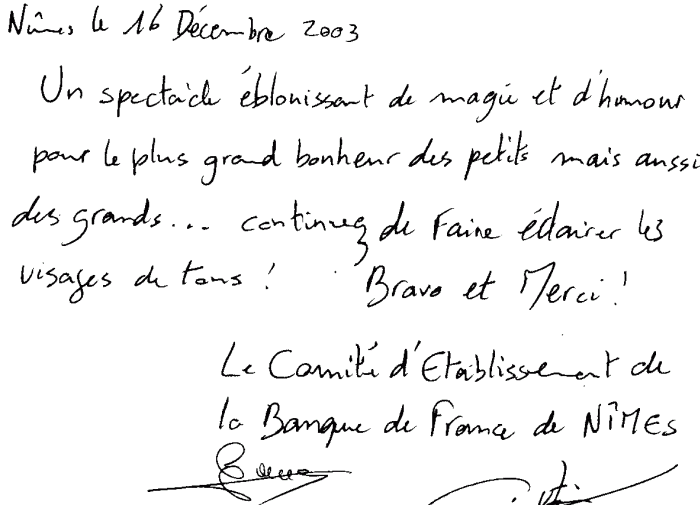 Nîmes le 16 Décembre 2003
Un spectacle éblouissant de magie et d'humour
pour le plus grand bonheur des petits mais aussi
des grands... continuez de Faire éclairer les
visages de tous ! Bravo et Merci !
Le Comité d'Etablissement de
la Banque de France de NÎMES